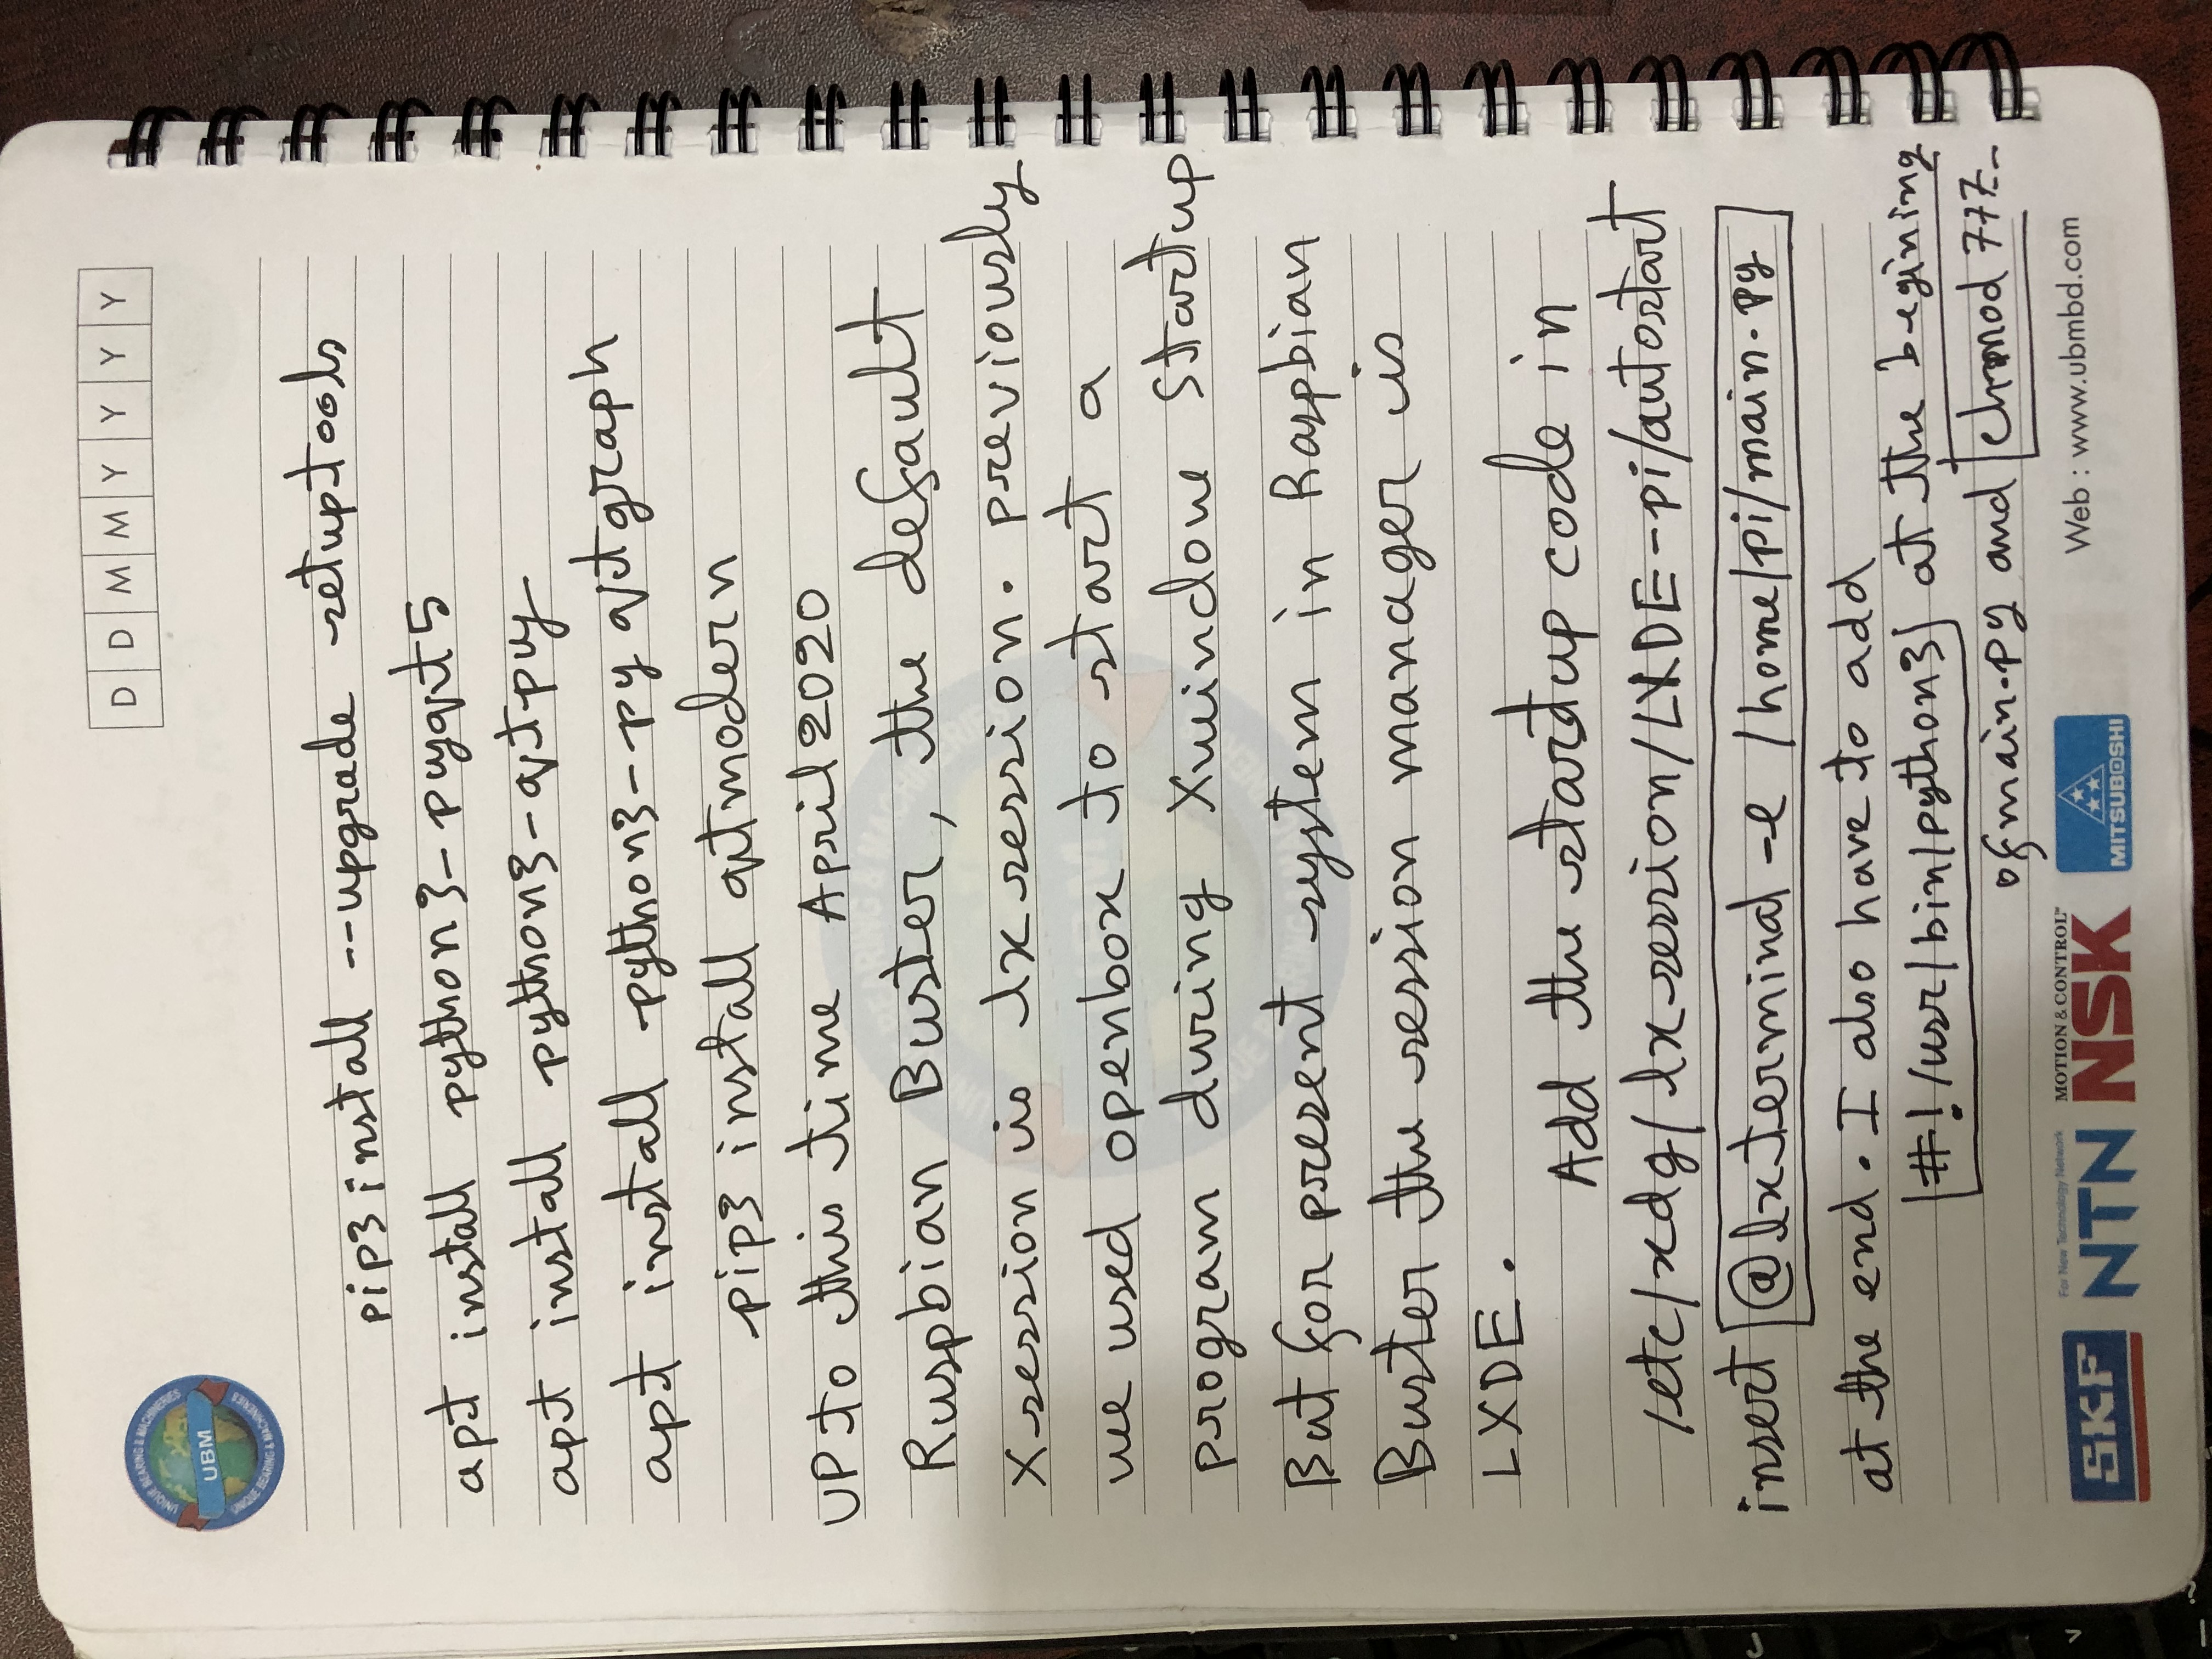 UNIQUE BEARING & MACHINERIES
UBM
UNIQUE BEARING & MACHINERIES
D D M M Y Y Y Y
pip3 install --upgrade setuptools
apt install python3-pyqt5
apt install python3-qtpy
apt install python3-pyqtgraph
pip3 install qtmodern
UP to this time April 2020
Ruspbian Buster, the default
X session is lxsession. previously
we used openbox to start a
program during Xwindow startup
But for present system in Raspbian
Buster the session manager is
LXDE.
Add the startup code in
/etc/xdg/lxsession/LXDE-pi/autostart
insert @lxterminal -e /home/pi/main.py
at the end. I also have to add
#!/usr/bin/python3 at the begining
of main.py and chmod 777
SKF
For New Technology Network
NTN
MOTION & CONTROL™
NSK
MITSUBOSHI
Web : www.ubmbd.com